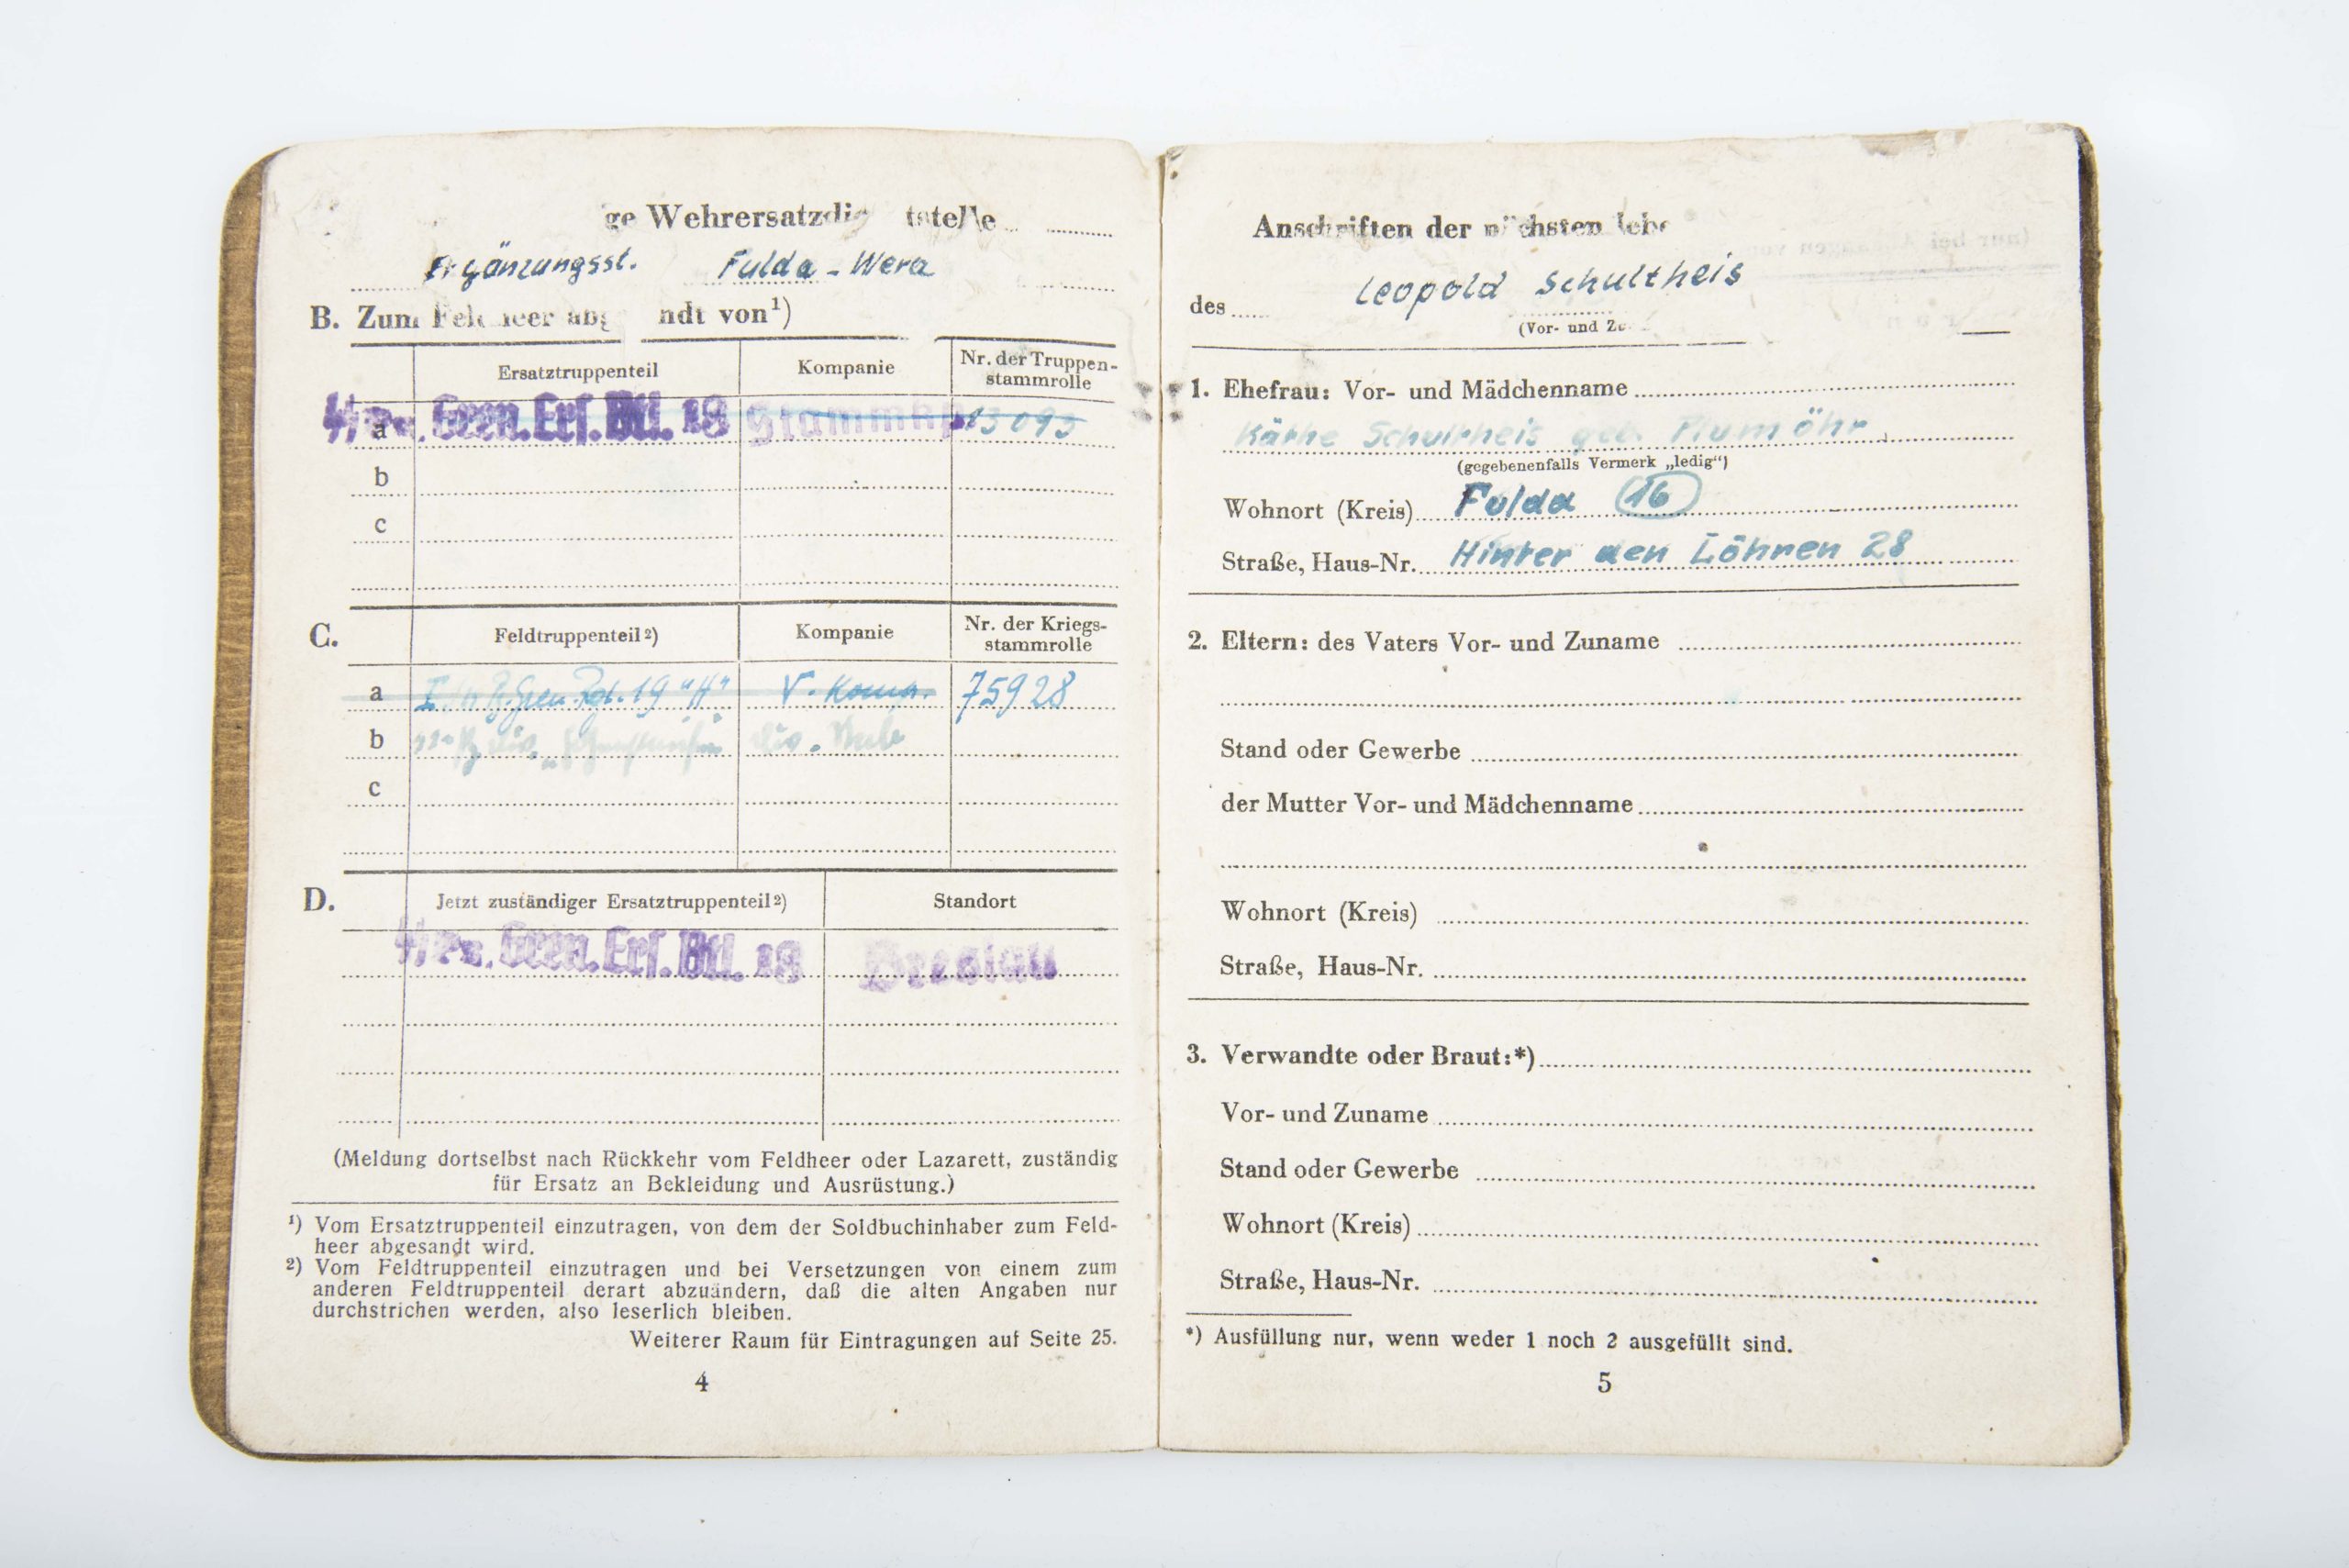 ge Wehrersatzdi tstelle
Ergänzungsst. Fulda - Wera
B. Zum Feldheer abg ndt von¹)
Ersatztruppenteil Kompanie Nr. der Truppen-
stammrolle
a ᛋᛋ Pz. Gren. Ers. Btl. 18 Stammkp. 13093
b
c
C. Feldtruppenteil²) Kompanie Nr. der Kriegs-
stammrolle
a Rgt. 19 "H" V. Komp. 75928
b Div.
c
D. Jetzt zuständiger Ersatztruppenteil²) Standort
ᛋᛋ Pz. Gren. Ers. Btl. 18 Breslau
(Meldung dortselbst nach Rückkehr vom Feldheer oder Lazarett, zuständig
für Ersatz an Bekleidung und Ausrüstung.)
¹) Vom Ersatztruppenteil einzutragen, von dem der Soldbuchinhaber zum Feld-
heer abgesandt wird.
²) Vom Feldtruppenteil einzutragen und bei Versetzungen von einem zum
anderen Feldtruppenteil derart abzuändern, daß die alten Angaben nur
durchstrichen werden, also leserlich bleiben.
Weiterer Raum für Eintragungen auf Seite 25.
4
Anschriften der nächsten lebe
des Leopold Schultheis
(Vor- und Zu
1. Ehefrau: Vor- und Mädchenname
Käthe Schultheis geb. Plumöhr
(gegebenenfalls Vermerk „ledig“)
Wohnort (Kreis) Fulda 16
Straße, Haus-Nr. Hinter den Löhnen 28
2. Eltern: des Vaters Vor- und Zuname
Stand oder Gewerbe
der Mutter Vor- und Mädchenname
Wohnort (Kreis)
Straße, Haus-Nr.
3. Verwandte oder Braut:*)
Vor- und Zuname
Stand oder Gewerbe
Wohnort (Kreis)
Straße, Haus-Nr.
*) Ausfüllung nur, wenn weder 1 noch 2 ausgefüllt sind.
5